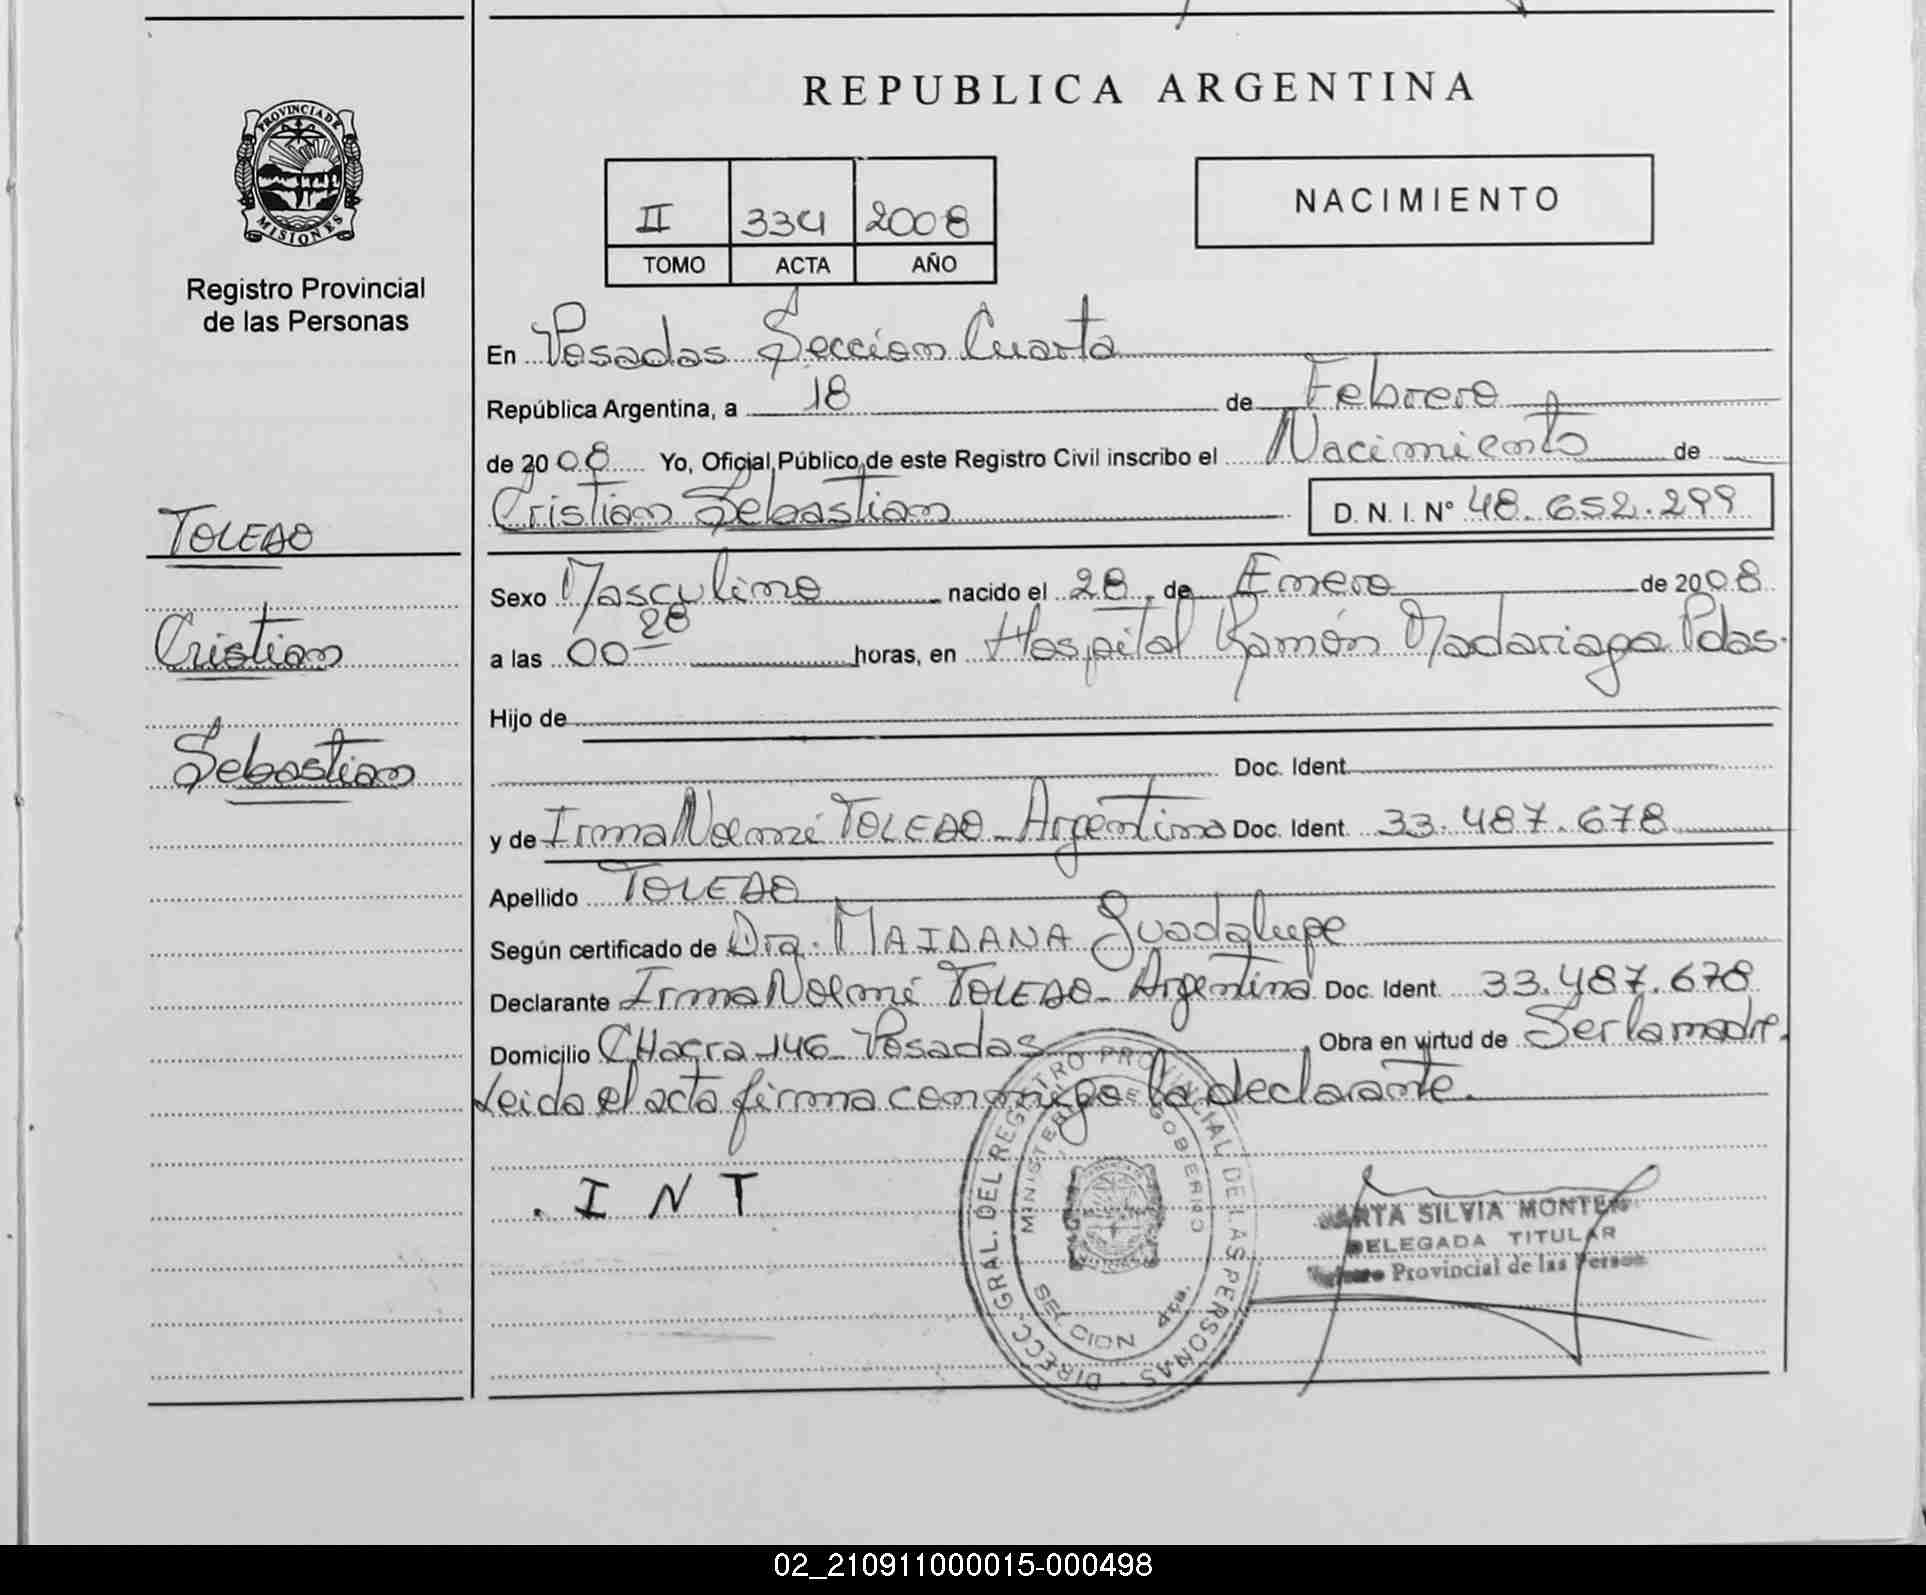 REPUBLICA ARGENTINA
PROVINCIA DE
MISIONES
Registro Provincial
de las Personas
II 334 2008
TOMO ACTA AÑO
NACIMIENTO
En Posadas Sección Cuarta
República Argentina, a 18 de Febrero
de 2008 Yo, Oficial Público de este Registro Civil inscribo el Nacimiento de
Cristian Sebastian D. N. I. N° 48.652.299
TOLEDO
Cristian
Sebastian
Sexo Masculino nacido el 28 de Enero de 2008
a las 00 28 horas, en Hospital Ramón Madariaga Pdas.
Hijo de
Doc. Ident.
y de Irma Noemí TOLEDO - Argentina Doc. Ident. 33.487.678
Apellido TOLEDO
Según certificado de Dra. MAIDANA Guadalupe
Declarante Irma Noemí TOLEDO - Argentina Doc. Ident. 33.487.678
Domicilio CHacra 146 Posadas Obra en virtud de Ser la madre.
Leida el acta firma conmigo la declarante.
. I N T
DIRECC. GRAL. DEL REGISTRO PROVINCIAL DE LAS PERSONAS
MINISTERIO DE GOBIERNO
SECCION 4ta.
MARTA SILVIA
DELEGADA TITULAR
Provincial de las
02_210911000015-000498